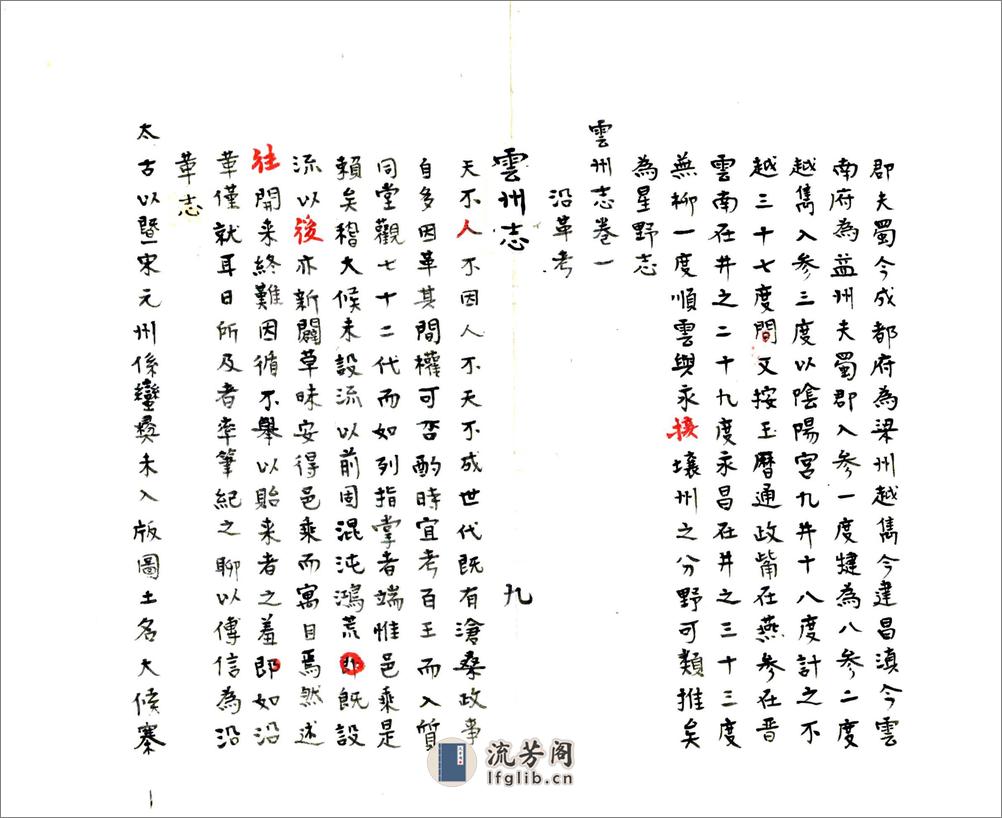 郡夫蜀今成都府為梁州越雋今建昌滇今雲
南府為益州夫蜀郡入参一度犍為八参二度
越雋入参三度以陰陽宮九井十八度計之不
越三十七度間又按玉曆通政觜在燕参在晋
雲南在井之二十九度永昌在井之三十三度
無柳一度順雲與永接壤州之分野可類推矣
為星野志
雲州志卷一
沿革考
雲州志 九
天不人不因人不天不成世代既有滄桑政事
自多因革其間權可否酌時宜考百王而入質
同堂觀七十二代而如列指掌者端惟邑乘是
賴矣稽大候未設流以前固混沌鴻荒即既設
流以後亦新闢草昧安得邑乘而寓目焉然述
往開来終難因循不舉以貽来者之羞即如沿
革僅就耳目所及者率筆紀之聊以傳信為沿
革志
太古以暨宋元州係蠻彝未入版圖土名大候寨
流芳阁
lfglib.cn